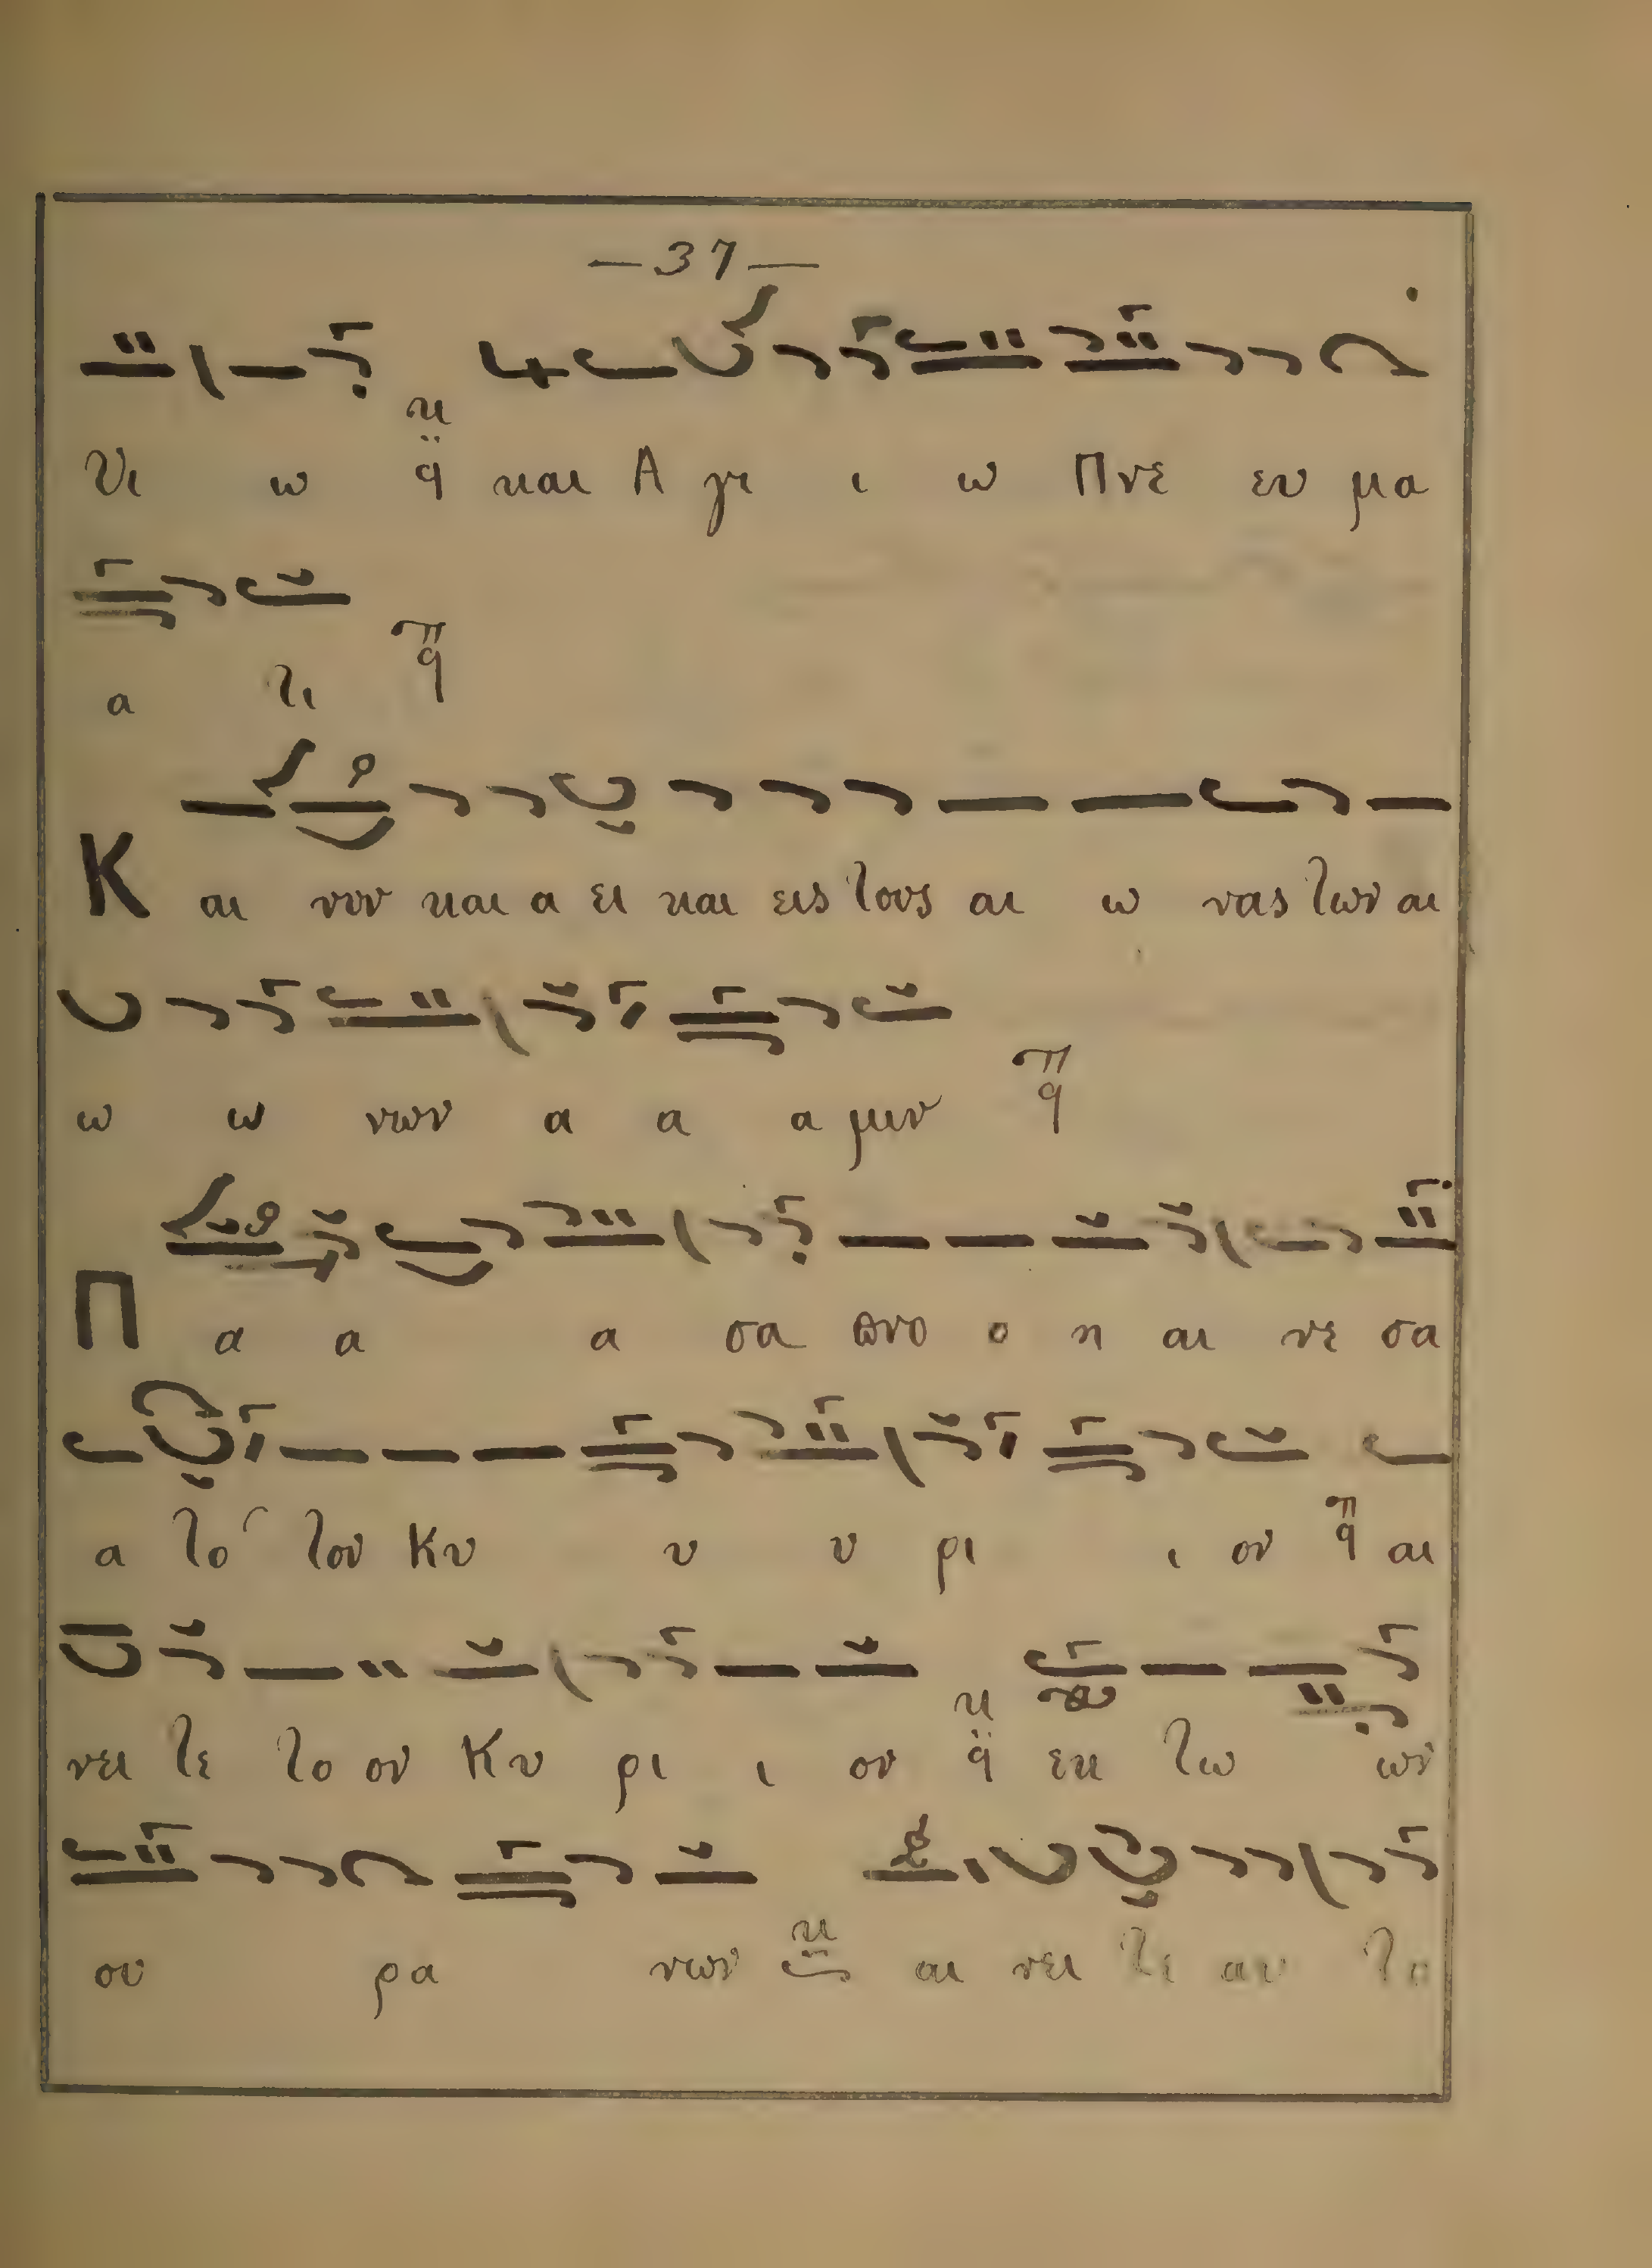 —37—
Υι ω κ̈ϥ και Α γι ι ω Πνε ευ μα
α τι πϥ
Κ αι νυν και α ει και εις τους αι ω νας των αι
ω ω νων α α α μιν πϥ
Π α α α σα πνο ο η αι νε σα
α το τον Κυ υ υ ρι ι ον πϥ αι
νει τε το ον Κυ ρι ι ον κ̈ϥ εκ τω ων
ου ρα νων κ αι νει τε αυ το